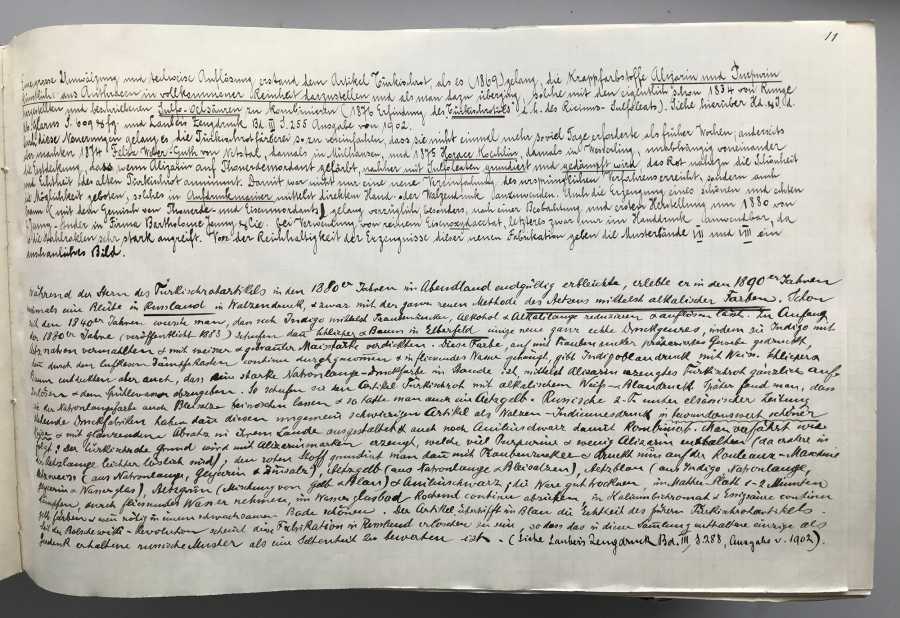 11
grosse Umwälzung und teilweise Auflösung erstand dem Artikel Türkischrot, als es (1869) gelang, die Krappfarbstoffe Alizarin und Purpurin
künstlich aus Anthracen in vollkommener Reinheit darzustellen und als man dazu überging, solche mit den eigentlich schon 1834 von Runge
hergestellten und beschriebenen Sulfo-Oelsäuren zu kombinieren (1876 Erfindung des Türkischrotöls d.h. des Ricinus-Sulfoleats). Siehe hierüber
S. 609 & ffg. und Lauber's Zeugdruck Bd III S. 255 Ausgabe von 1902.
diese Neuerungen gelang es die Türkischrotfärberei so zu vereinfachen, dass sie nicht einmal mehr soviel Tage erforderte als früher Wochen; anderseits
machten 1874 Felix Weber-Guth von Netstal, damals in Mülhausen, und 1875 Horace Köchlin, damals in Wesserling, unabhängig voneinander
die Entdeckung, dass wenn Alizarin auf Thonerdemordant gefärbt, nachher mit Sulfoleaten grundiert und gedämpft wird das Rot nahezu die Schönheit
und Echtheit des alten Türkischrot annimmt. Damit war nicht nur eine neue Vereinfachung des ursprünglichen Verfahrens erreicht, sondern auch
die Möglichkeit geboten, solches in Aufdruckmanier mittelst direktem Hand- oder Walzendruck anzuwenden. Auch die Erzeugung eines schönen und echten
(mit dem Gemisch von Thonerde- und Eisenmordants) gelang vorzüglich besonders, nach einer Beobachtung und ersten Herstellung um 1880 von
in Firma Bartholome Jenny & Cie. bei Verwendung von reinem Eisenoxydacetat, letzteres zwar nur im Handdruck anwendbar, da
es die Stahlrakeln sehr stark angreift. Von der Reichhaltigkeit der Erzeugnisse dieser neuen Fabrikation geben die Musterbände VII und VIII ein
anschauliches Bild.
Während der Stern des Türkischrotartikels in den 1880er Jahren im Abendland endgültig erblichte, erlebte er in den 1890er Jahren
nochmals eine Blüte in Russland in Walzendruck, & zwar mit der ganz neuen Methode des Aetzens mittelst alkalischer Farben. Schon
seit den 1840er Jahren wusste man, dass sich Indigo mittelst Traubenzucker, Alkohol & Alkalilauge reduzieren & auflösen lässt. Zu Anfang
der 1880er Jahre (veröffentlicht 1883) schufen dann Schlieper & Baum in Elberfeld einige neue ganz echte Druckgenres, indem sie Indigo mit
natron vermahlten & mit weisser & gebrannter Maisstärke verdickten. Diese Farbe, auf mit Traubenzucker präpariertes Gewebe gedruckt,
dann durch den luftleeren Dämpfkasten continue durchgenommen & in fliessendes Wasser gehängt, gibt Indigoblaudruck mit Weiss. Schlieper &
Baum entdeckten aber auch, dass eine starke Natronlauge-Druckfarbe im Stande sei, mittelst Alizarin erzeugtes Türkischrot gänzlich auf-
zulösen & dem Spülwasser abzugeben. So schufen sie den Artikel Türkischrot mit alkalischem Weiss-Blaudruck. Später fand man, dass
sich der Natronlaugefarbe auch Bleisalze beimischen lassen & so hatte man auch ein Aetzgelb. Russische & in unter elsässischer Leitung
stehende Druckfabriken haben dann diesen ungemein schwierigen Artikel als Walzen-Indiennesdruck in bewundernswert schöner
& mit glänzendem Absatz in ihrem Lande ausgestaltet & auch noch Anilinschwarz damit kombiniert. Man verfährt wie
folgt: Der türkischrote Grund wird mit Alizarinmarken erzeugt, welche viel Purpurine & wenig Alizarin enthalten (da erstere in
der Aetzlauge leichter löslich sind), den roten Stoff grundiert man dann mit Traubenzucker & druckt nun auf der Rouleaux-Maschine
Aetzweiss (aus Natronlauge, Glycerin & Zinnsalz), Aetzgelb (aus Natronlauge & Bleisalzen), Aetzblau (aus Indigo, Natronlauge,
Glycerin & Wasserglas), Aetzgrün (Mischung von Gelb & Blau) & Anilinschwarz; die Ware gut trocknen, im Mather-Platt 1-2 Minuten
dämpfen, durch fliessendes Wasser nehmen, im Wasserglasbad kochend continue abziehen, in Kaliumbichromat & Essigsäure continue
gelb färben & wenn nötig in einem schwachsauren Bade schönen. Der Artikel übertrifft in Blau die Echtheit des früheren Türkischrotartikels.
Seit der Bolschewiki-Revolution scheint diese Fabrikation in Russland erloschen zu sein, sodass das in dieser Sammlung enthaltene einzige als
Geschenk erhaltene russische Muster als eine Seltenheit zu bewerten ist. (Siehe Lauber's Zeugdruck Bd. III S. 288, Ausgabe v. 1902).